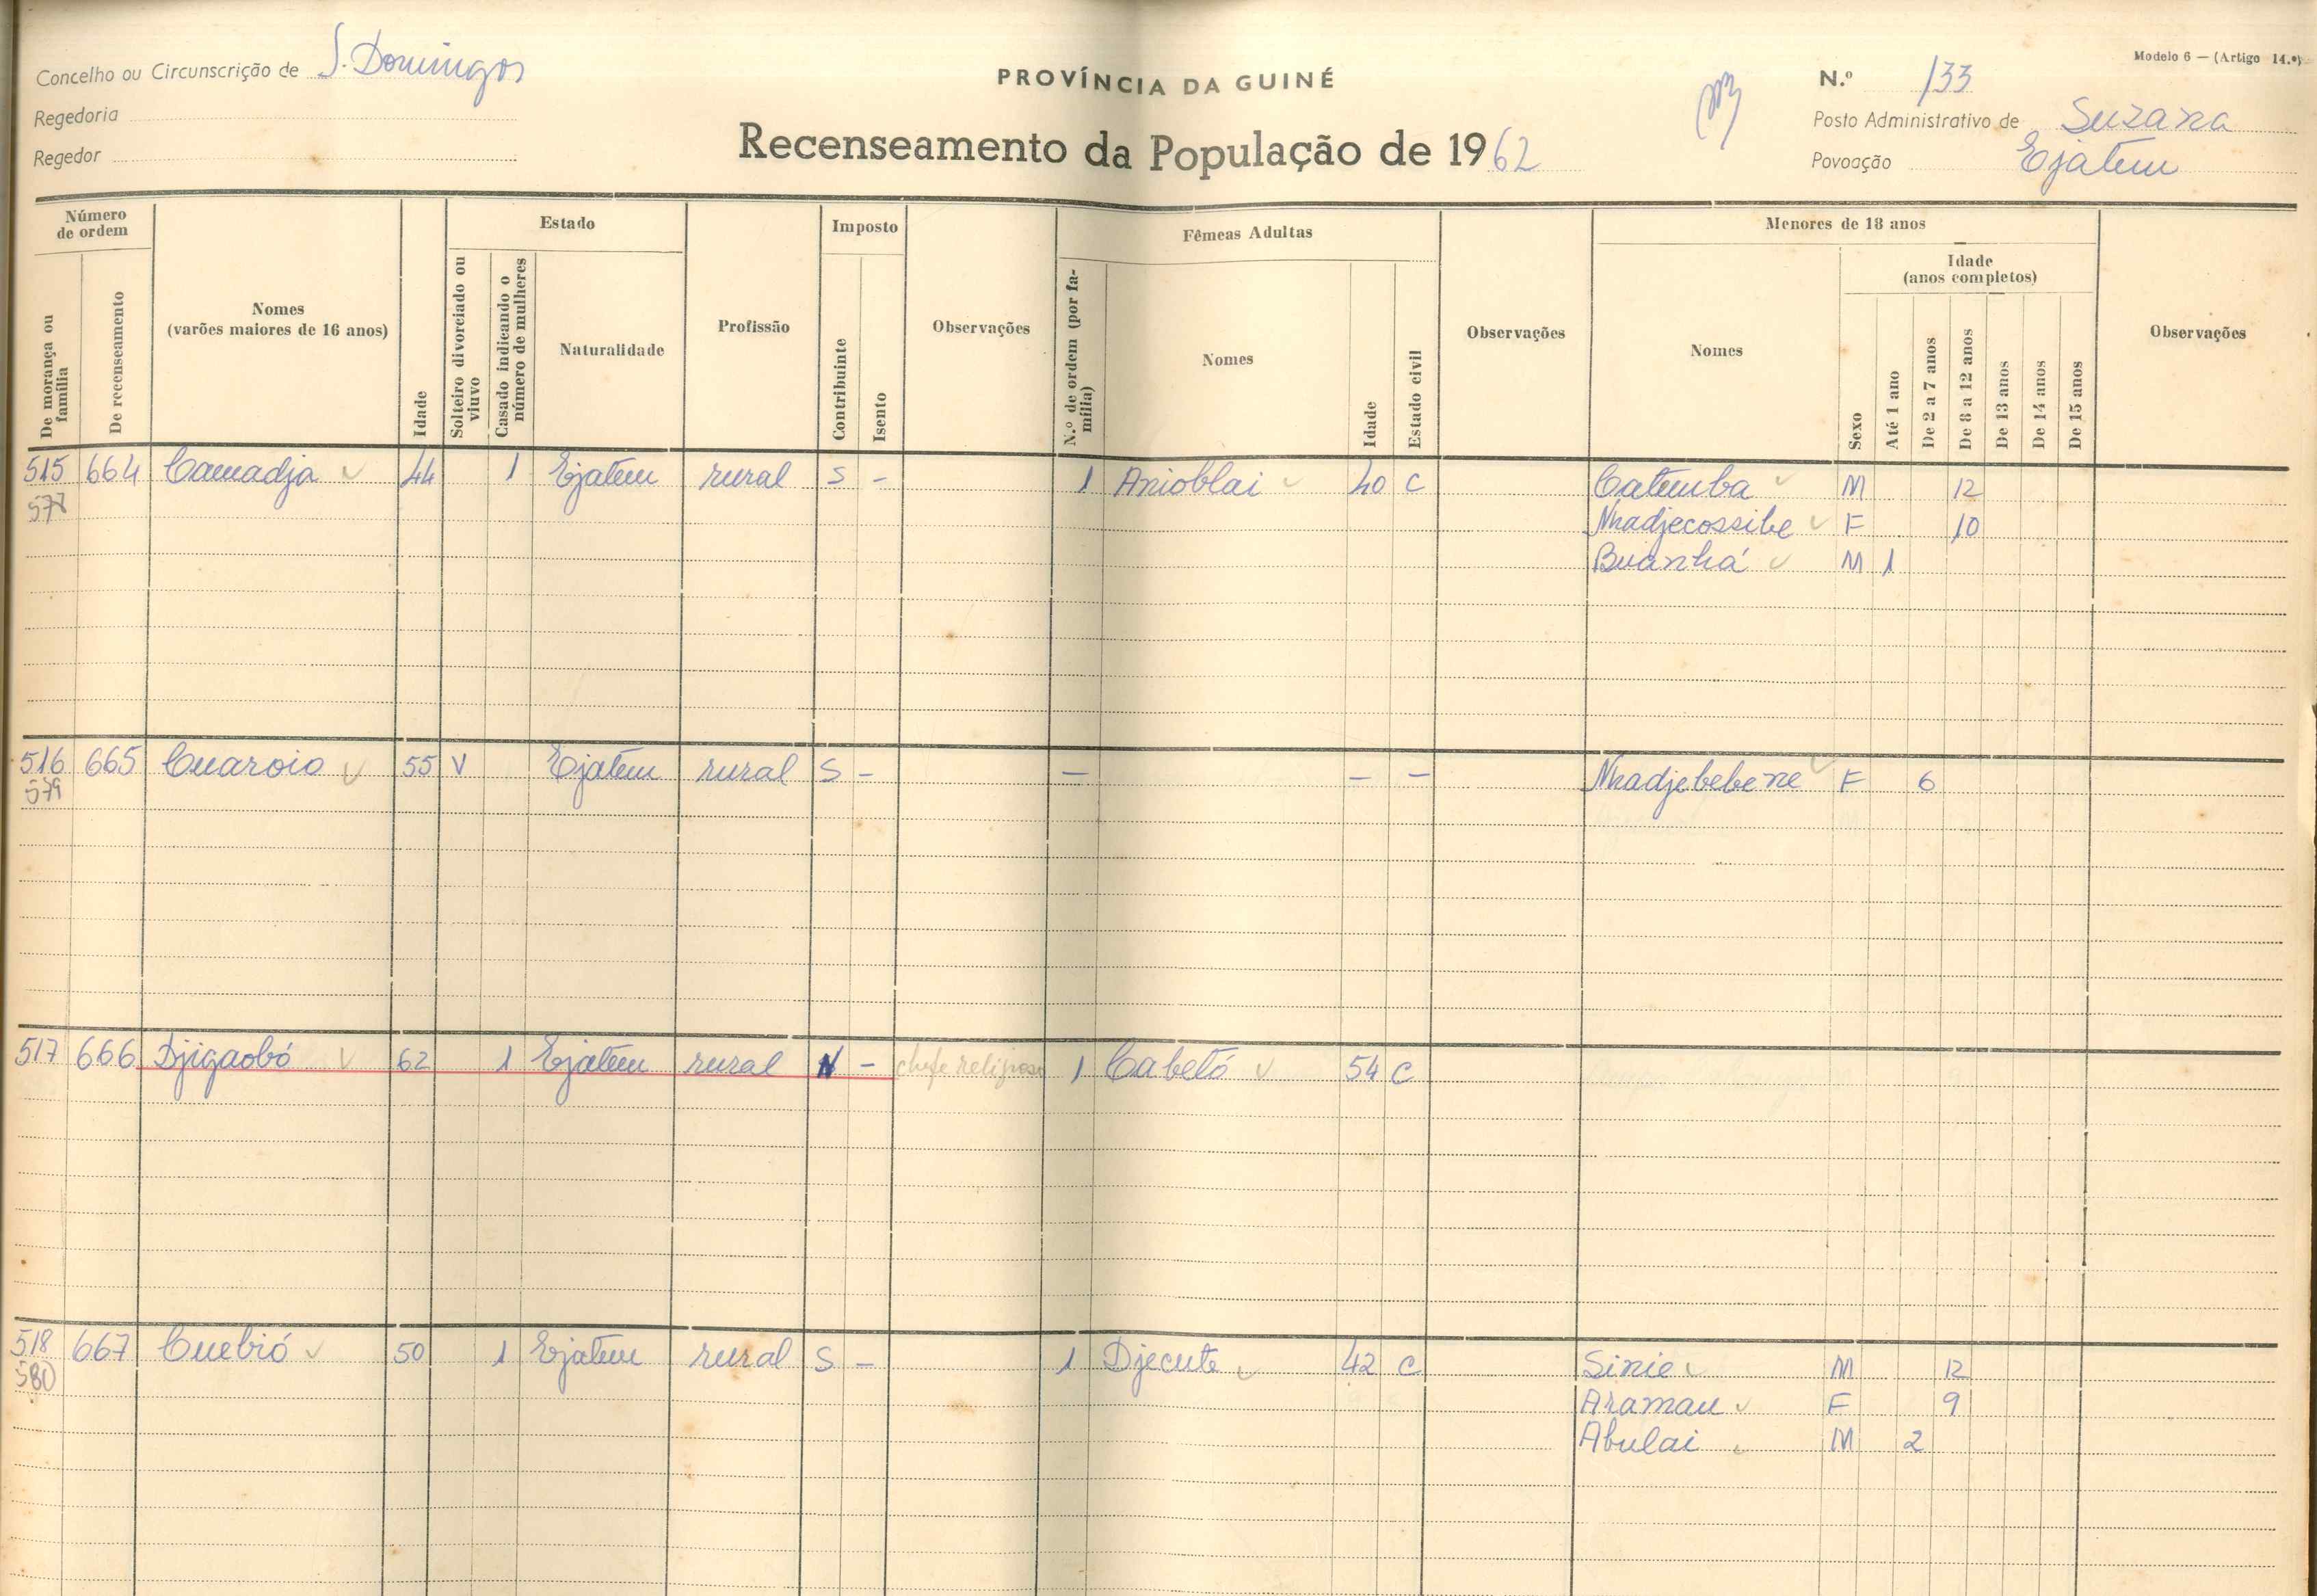 Modelo 6 — (Artigo 14.º)
Concelho ou Circunscrição de S. Domingos
Regedoria
Regedor
PROVÍNCIA DA GUINÉ
Recenseamento da População de 1962
N.º 133
Posto Administrativo de Suzana
Povoação Ejatem
Número de ordem
De morança ou família
De recenseamento
Nomes
(varões maiores de 16 anos)
Idade
Estado
Solteiro divorciado ou viuvo
Casado indicando o número de mulheres
Naturalidade
Profissão
Imposto
Contribuinte
Isento
Observações
Fêmeas Adultas
N.º de ordem (por família)
Nomes
Idade
Estado civil
Observações
Menores de 18 anos
Nomes
Sexo
Idade
(anos completos)
Até 1 ano
De 2 a 7 anos
De 8 a 12 anos
De 13 anos
De 14 anos
De 15 anos
Observações
515 664 Camadja 44 1 Ejatem rural S - 1 Anioblai 40 C Catemba M 12
Nhadjecossibe F 10
Buanhá M 1
516 665 Cuaroio 55 V Ejatem rural S - — — — Nhadjebebene F 6
579
517 666 Djigaobó 62 1 Ejatem rural N - chefe religioso 1 Cabetó 54 C
518 667 Cuebió 50 1 Ejatem rural S - 1 Djecute 42 C Sinie M 12
580 Aramau F 9
Abulai M 2